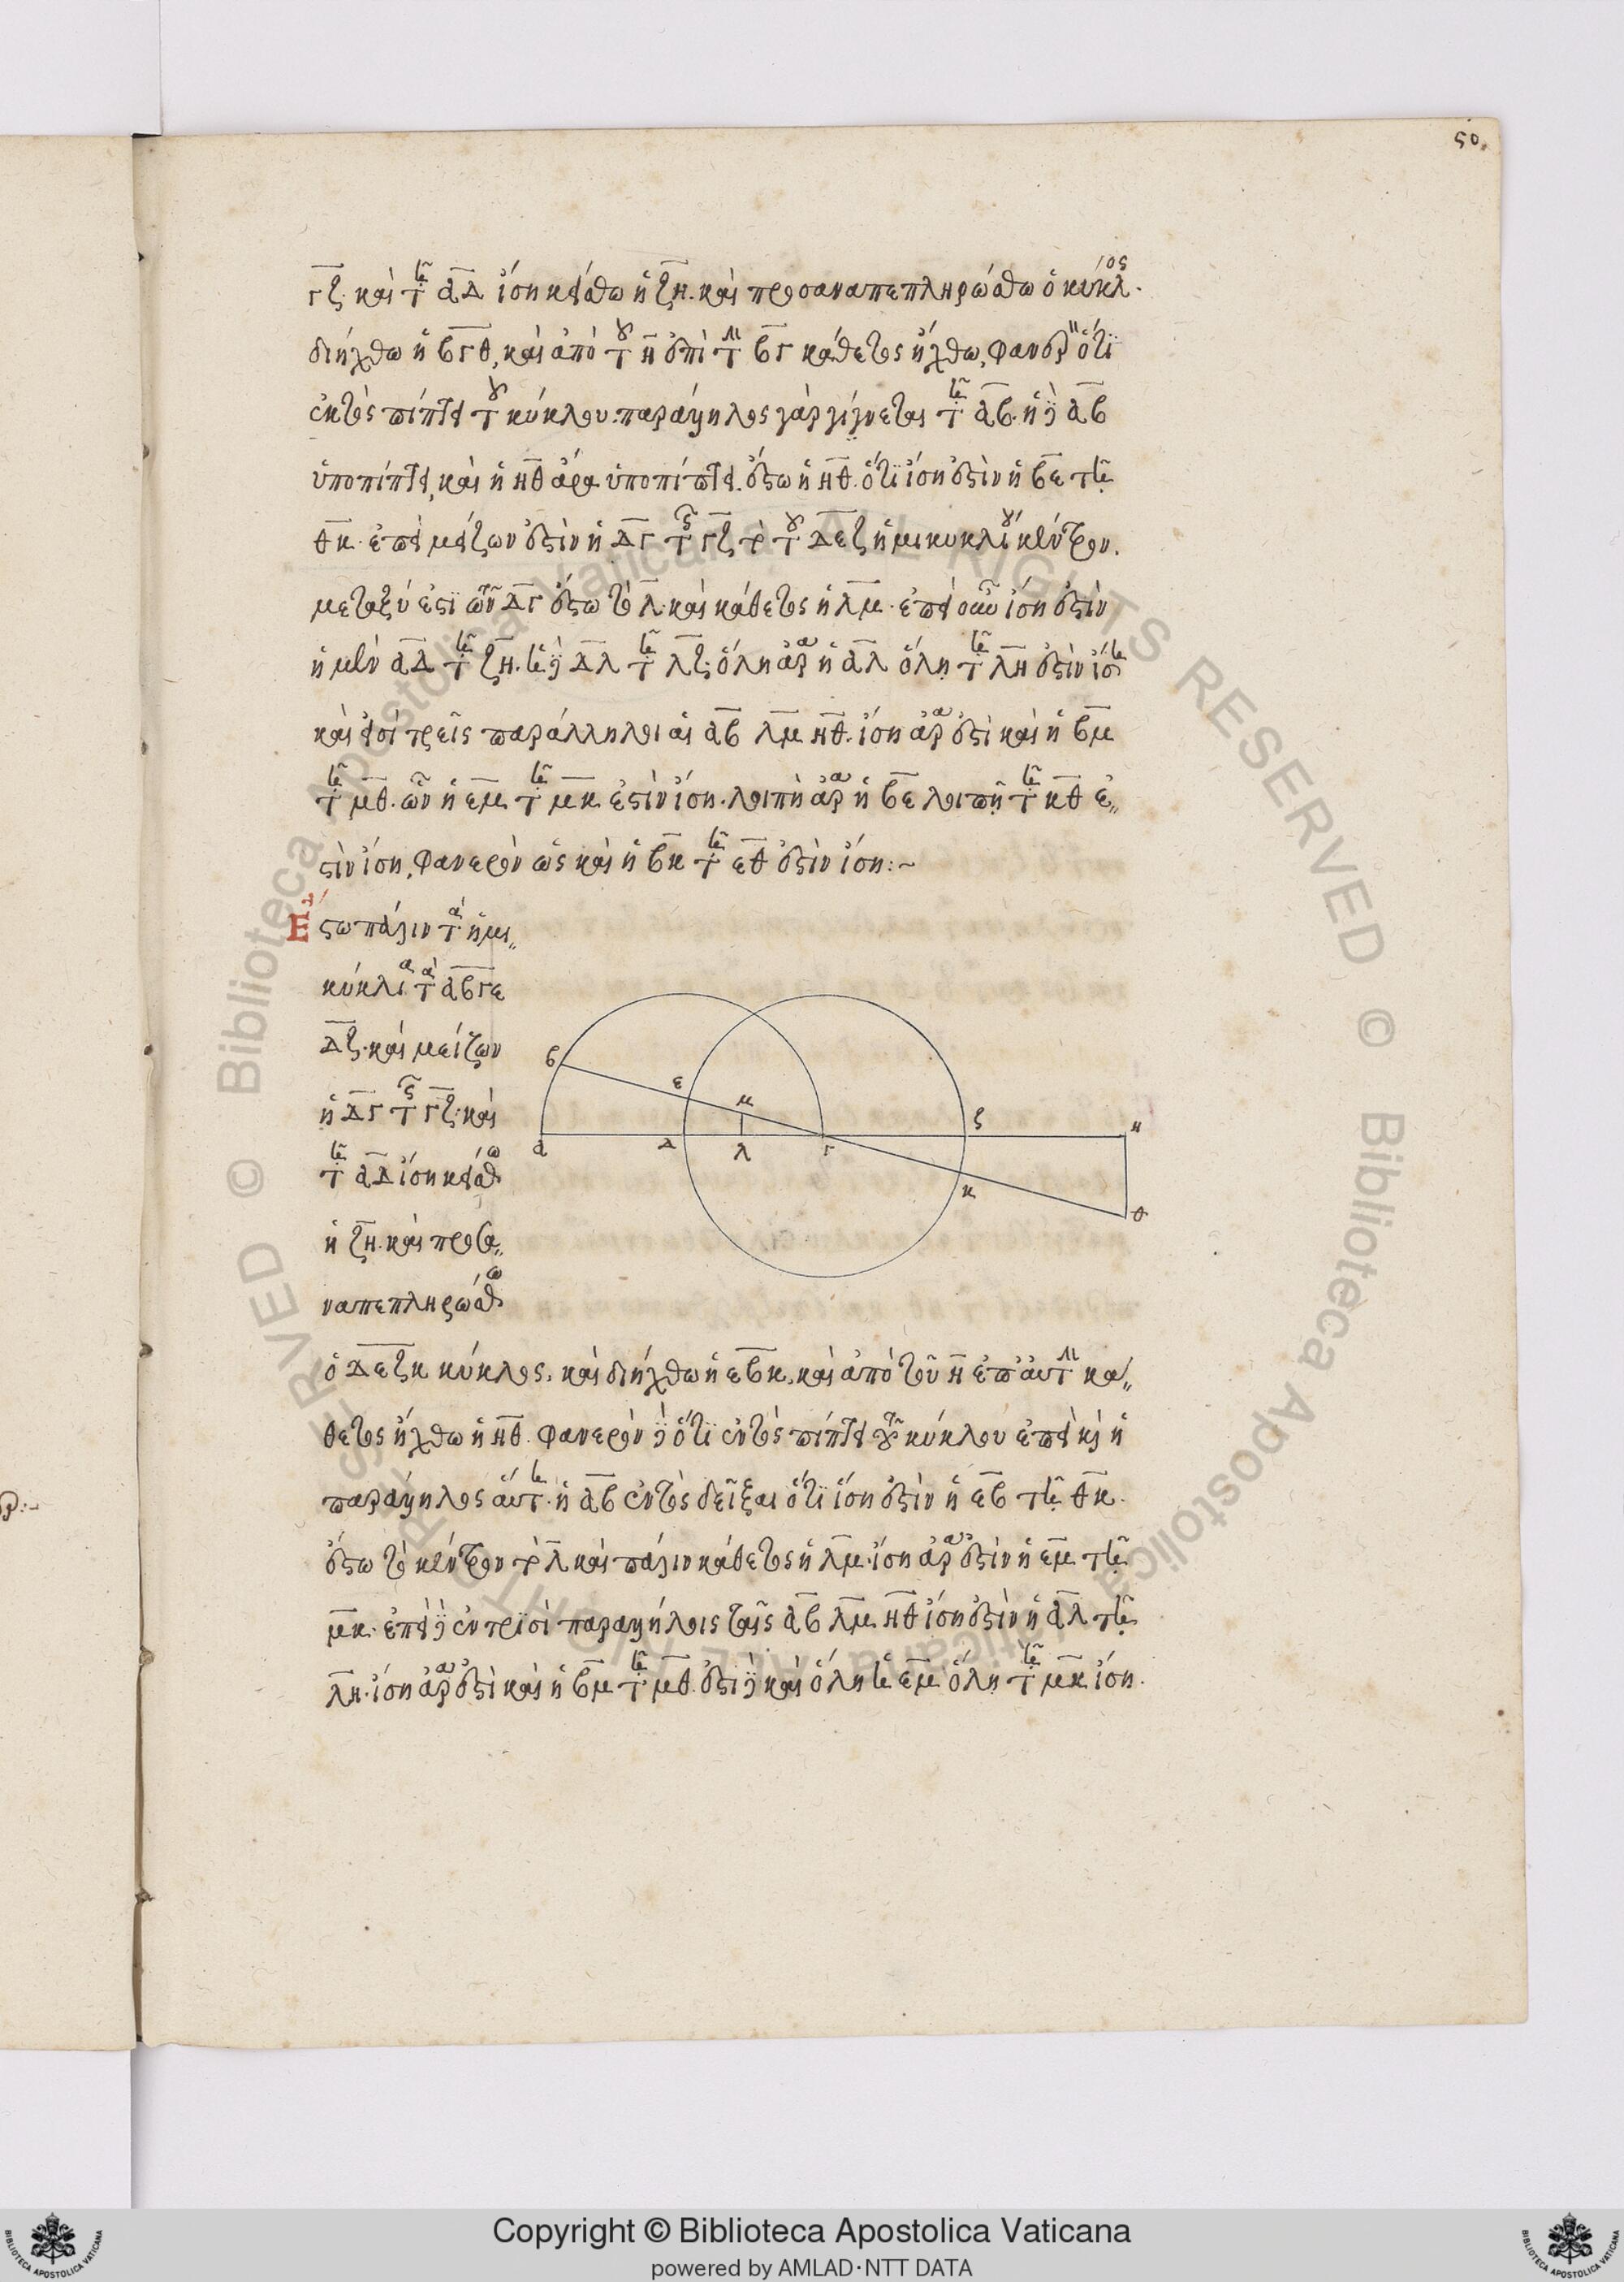 50.
ΓΖ. καὶ τῇ ΑΔ ἴση κείσθω ἡ ΖΗ. καὶ προσαναπεπληρώσθω ὁ κύκλος.
διήχθω ἡ ΒΓΘ, καὶ ἀπὸ τοῦ Η ἐπὶ τὴν ΒΓ κάθετος ἤχθω, φανερὸν ὅτι
ἐκτὸς πίπτει τοῦ κύκλου. παράλληλος γὰρ γίγνεται τῇ ΑΒ. ἡ δὲ ΑΒ
ὑποπίπτει, καὶ ἡ ΗΘ ἄρα ὑποπίπτει. ἔστω ἡ ΗΘ. ὅτι ἴση ἐστὶν ἡ ΒΕ τῇ
ΘΚ. ἐπεὶ μείζων ἐστὶν ἡ ΔΓ τῆς ΓΖ τὸ τοῦ ΔΕΖ ἡμικυκλίου κέντρον.
μεταξύ ἐστι τῶν ΔΓ ἔστω τὸ Λ. καὶ κάθετος ἡ ΛΜ. ἐπεὶ οὖν ἴση ἐστὶν
ἡ μὲν ΑΔ τῇ ΖΗ. ἡ δὲ ΔΛ τῇ ΛΖ. ὅλη ἄρα ἡ ΑΛ ὅλῃ τῇ ΛΗ ἐστὶν ἴση
καὶ εἰσὶ τρεῖς παράλληλοι αἱ ΑΒ ΛΜ ΗΘ. ἴση ἄρα ἐστὶ καὶ ἡ ΒΜ
τῇ ΜΘ. ὧν ἡ ΕΜ τῇ ΜΚ ἐστὶν ἴση. λοιπὴ ἄρα ἡ ΒΕ λοιπῇ τῇ ΚΘ ἐ
στὶν ἴση, φανερὸν ὡς καὶ ἡ ΒΚ τῇ ΕΘ ἐστὶν ἴση:~
Ἔστω πάλιν τὰ ἡμι
κύκλια τὰ ΑΒΓ Ε
ΔΖ. καὶ μείζων
ἡ ΔΓ τῆς ΓΖ. καὶ
τῇ ΑΔ ἴση κείσθω
ἡ ΖΗ. καὶ προσα
ναπεπληρώσθω
Β Ε Μ Ζ Η
Α Δ Λ Γ
Κ Θ
ὁ ΔΕΖΚ κύκλος. καὶ διήχθω ἡ ΕΒΚ. καὶ ἀπὸ τοῦ Η ἐπ' αὐτὴν κά
θετος ἤχθω ἡ ΗΘ. φανερὸν δὲ ὅτι ἐντὸς πίπτει τοῦ κύκλου ἐπεὶ καὶ ἡ
παράλληλος αὐτῇ. ἡ ΑΒ ἐντὸς δεῖξαι ὅτι ἴση ἐστὶν ἡ ΕΒ τῇ ΘΚ.
ἔστω τὸ κέντρον τὸ Λ καὶ πάλιν κάθετος ἡ ΛΜ. ἴση ἄρα ἐστὶν ἡ ΕΜ τῇ
ΜΚ. ἐπεὶ δὲ ἐν τρισὶ παραλλήλοις ταῖς ΑΒ ΛΜ ΗΘ ἴση ἐστὶν ἡ ΑΛ τῇ
ΛΗ. ἴση ἄρα ἐστὶ καὶ ἡ ΒΜ τῇ ΜΘ. ἔστι δὲ καὶ ὅλη ἡ ΕΜ ὅλῃ τῇ ΜΚ ἴση.
© Biblioteca Apostolica Vaticana ALL RIGHTS RESERVED
Copyright © Biblioteca Apostolica Vaticana
powered by AMLAD·NTT DATA